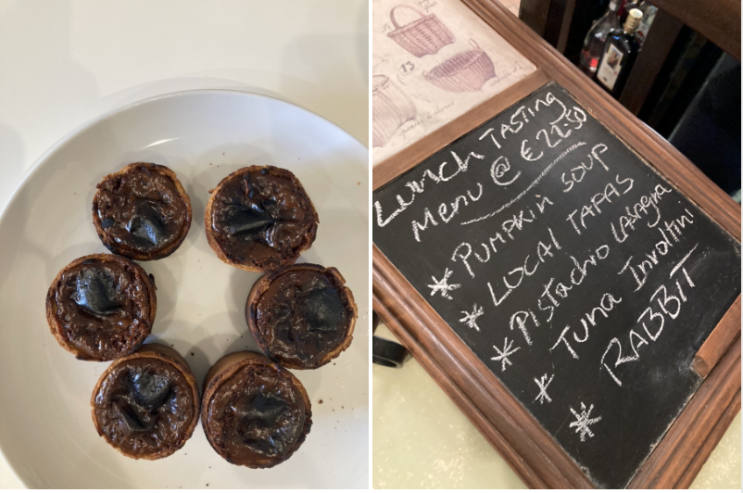 Lunch TASTING
Menu @ €22.50
* PUMPKIN SOUP
* LOCAL TAPAS
* Pistachio Lasagna
* Tuna Involtini
* RABBIT
13